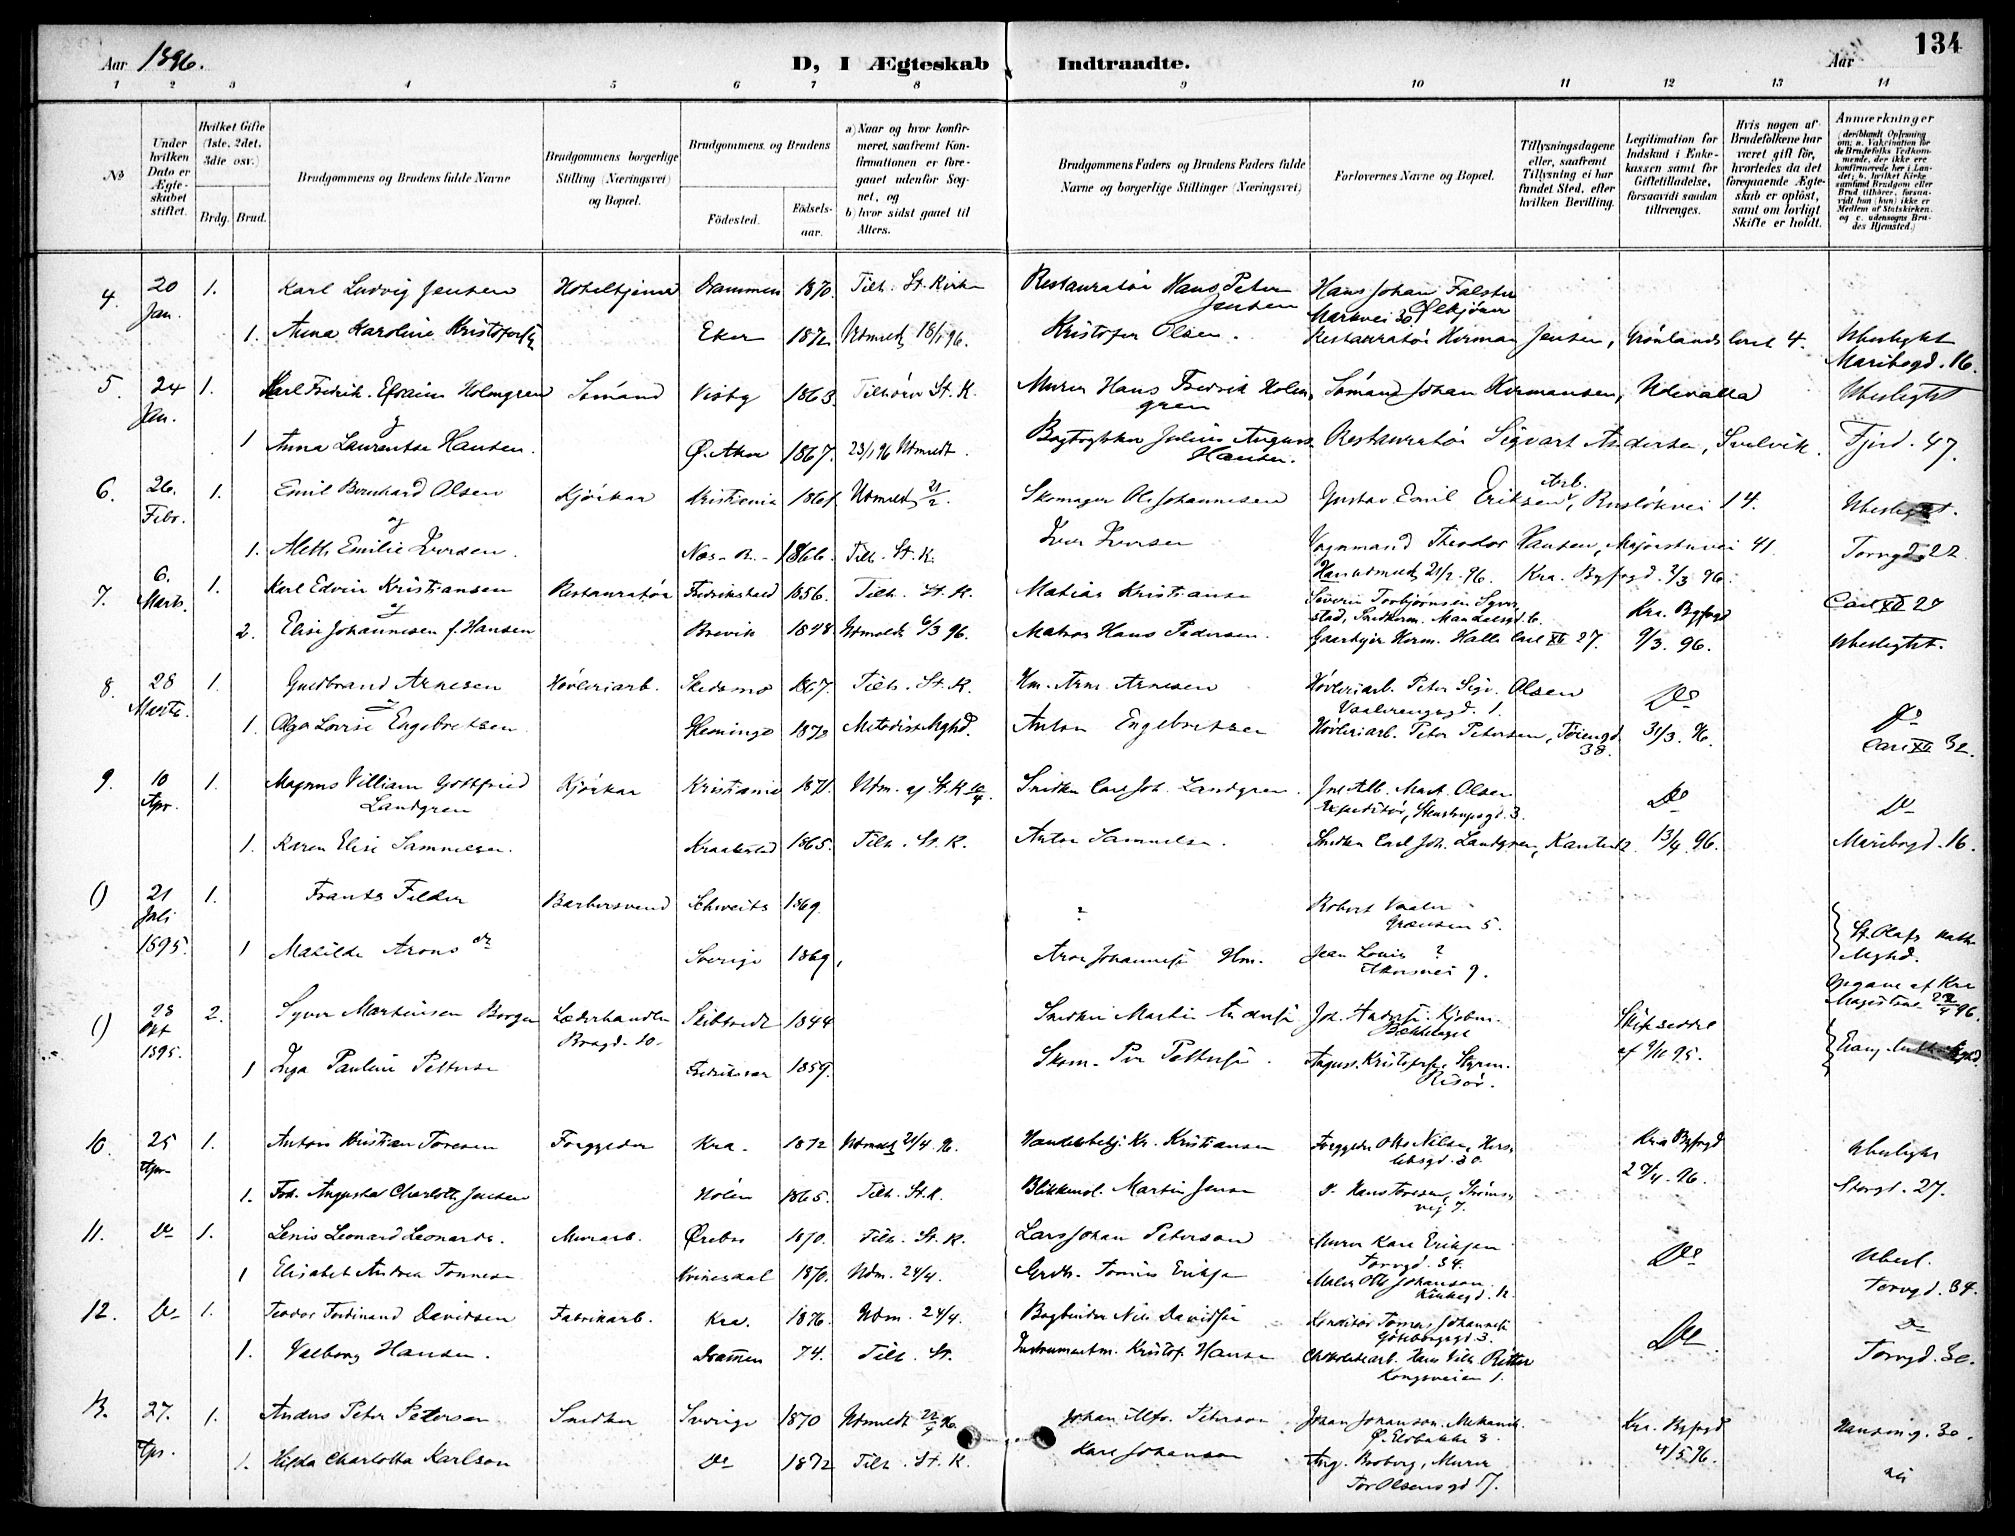 134
Aar 1896.
D, I Ægteskab Indtraadte.
Aar
1 2 3 4 5 6 7 8 9 10 11 12 13 14
No
Under hvilken Dato er Ægteskabet stiftet.
Hvilket Gifte (1ste, 2det, 3die osv.)
Brdg. Brud.
Brudgommens og Brudens fulde Navne
Brudgommens borgerlige Stilling (Næringsvei) og Bopæl.
Brudgommens og Brudens
Födested.
Födselsaar.
a) Naar og hvor konfirmeret, saafremt Konfirmationen er foregaaet udenfor Sognet, og
b) hvor sidst gaaet til Alters.
Brudgommens Faders og Brudens Faders fulde Navne og borgerlige Stillinger (Næringsvei)
Forlovernes Navne og Bopæl.
Tillysningsdagene eller, saafremt Tillysning ei har fundet Sted, efter hvilken Bevilling.
Legitimation for Indskud i Enkekassen samt for Giftetilladelse, forsaavidt saadan tiltrænges.
Hvis nogen af Brudefolkene har været gift för, hvorledes da det foregaaende Ægteskab er oplöst, samt om lovligt Skifte er holdt.
Anmærkninger
(deriblandt Oplysning om: a. Vakcination for de Brudefolks Vedkommende, der ikke ere konfirmerede her i Landet; b. hvilket Kirkesamfund Brudgom eller Brud tilhörer, forsaavidt han (hun) ikke er Medlem af Statskirken, og c. udensogns Brudes Hjemsted.)
4. 20 Jan. 1. Karl Ludvig Jensen Hoteltjener Drammen 1870. Tilh. St. Kirke Restauratør Hans Peter Jensen Hans Johan Falster Ølkjører Markvei 30.
1. Anna Karoline Kristofersen Eker 1872 Udmeldt 18/1 96. Kristofer Olsen. Restauratør Herman Jensen, Grønlandsleret 4. Ubeslægtet Maribogd. 16.
5. 24 Jan. 1. Karl Fredrik Efraim Holmgren Sømand Visby 1863. Tilhører St. K. Murer Hans Fredrik Holmgren Sømand Johan Hermansen, Udevalla Ubeslægtet
og
1 Anna Laurentse Hansen. Ø. Aker 1867. 23/1 96 Udmeldt. Bogtrykker Julius August Hansen. Restauratør Sigvart Andersen, Svelvik. Fjerd. 47.
6. 26. Febr. 1. Emil Bernhard Olsen Kjørekar Kristiania 1868. Udmeldt 21/2. Skomager Ole Johannesen Gustav Emil Eriksen, Arb. Ruseløkvei 14. Ubeslægtet.
og
1. Aleth. Emilie Iversen. Næs - R. - 1866. Tilh. St. K. Iver Iversen Vognmand Theodor Hansen, Majorstuvei 41 Torvgd. 22.
7. 6. Marts. 1. Karl Edvin Kristiansen Restauratør Fredrikstad 1856. Tilh. St. K. Matias Kristiansen Han udmeldt 21/2. 96. Kra. Byfogd. 2/3 96. Carl XII 27
og
2. Elise Johannesen f. Hansen Brevik 1848 Udmeldt 6/3 96. Matros Hans Pedersen. Severin Torbjørnsen Snedkerm. Mandalsgd. 6. Gaardejer Herm. Halle Carl XII 27. Kra. Byfogd 9/3. 96. Ubeslægtet.
8. 28 Marts. 1. Guldbrand Arnesen Høvleriarb. Skedsmo 1867. Tilh. St. K. Hm. Arne Arnesen Høvleriarb. Peter Sigv. Olsen Vaalerengagd. 1. Do Do
og
1. Olga Lovise Engebretsen Hemingø 1872 Metodist Mghd. Anton Engebretsen Høvleriarb. Peter Petersen, Tøiengd. 38. 31/3. 96. Carl XII 32.
9. 10 Apr. 1. Magnus Villiam Gottfried Landgren Kjørekar Kristiania 1871. Udm. af St. K 10/4. Snedker Carl Joh. Landgren. Joh. Alb. Mart. Olsen Expeditør, Stenstrupsgd. 3. Do Do
1. Karen Elise Samuelsen. Kraakstad 1865. Tilh. St. K. Anton Samuelsen. Snedker Carl Joh. Landgren, 13/4 96. Maribogd. 16.
() 21 Juli 1895. 1. Frants Felder Barbersvend Schweits 1869. ? Robert Vaaler Grænsen 5. St. Olafs kath. Mghd.
1 Matilde Aronsdr Sverige 1869. Aron Johannesen Hm. Jean Louis ? Akersvei 9.
() 28 Okt 1895. 2. Syver Martinsen Borger Læderhandler Brogd. 20. Skibtvedt 1844 Snedker Martin Andersen Joh. Andersen Kjøbm. Bækkelaget Skifteseddel af 9/11 95. Opgave af Kra Magistrat 22/4 96.
1 Inga Pauline Pettersen Fredriksvær 1859. Skom. Per Pettersen. August Kristofersen Styrm. Risør. Evang. luth. Mghd.
10. 25 Apr. 1. Anton Kristian Toresen Forgylder Kra. 1872 Udmeldt 24/4 96. Handelsbetj. Kr. Kristiansen Forgylder Otto Nilsen, Herslebsgd. 30. Kra Byfogd 27/4. 96. Ubeslægtet
1. Fred. Augusta Charlotte Jensen Hølen 1865. Tilh. St. K. Blikkensl. Martin Jensen Do Hans Toresen, Strømsvej 7. Storgt. 27.
11. Do 1. Lenis Leonard Leonards. Murarb. Ørebro 1870. Tilh. St. K. Lars Johan Peterson Murer Karl Eriksen Torvgd. 34. Do Ubesl.
1 Elisabet Andrea Tønnesen Kvinesdal 1870. Udm. 24/4. Grdb. Tønnes Eriksen Maler Otto Johanson. Kirkegd. 12. Torvgd. 34.
12. Do 1. Teodor Ferdinand Davidsen Fabrikarb. Kra. 1876. Udm. 24/4. Bogbinder Nils Davidsen Konditor Tønnes Johannesen Göteborgsgd. 3. Do Do
1. Valborg Hansen. Drammen 74. Tilh. St. Instrumentm. Kristof. Hansen Chokoladearb. Hans Vilh. Ritter Kongsveien 1. Torvgd. 30.
13. 27. Apr. 1. Anders Peter Petersen Snedker Sverige 1870 Udmeldt 22/4 96 Johan Alfr. Peterson Johan Johanson. Mekanik. Ø. Elvbakke 8. Kra. Byfogd 4/5 96. Hausmg. 30.
1. Hilda Charlotta Karlson Do 1872 Tilh. St. K. Karl Johanson Aug. Broberg, Murer Tor Olsens gd 17.